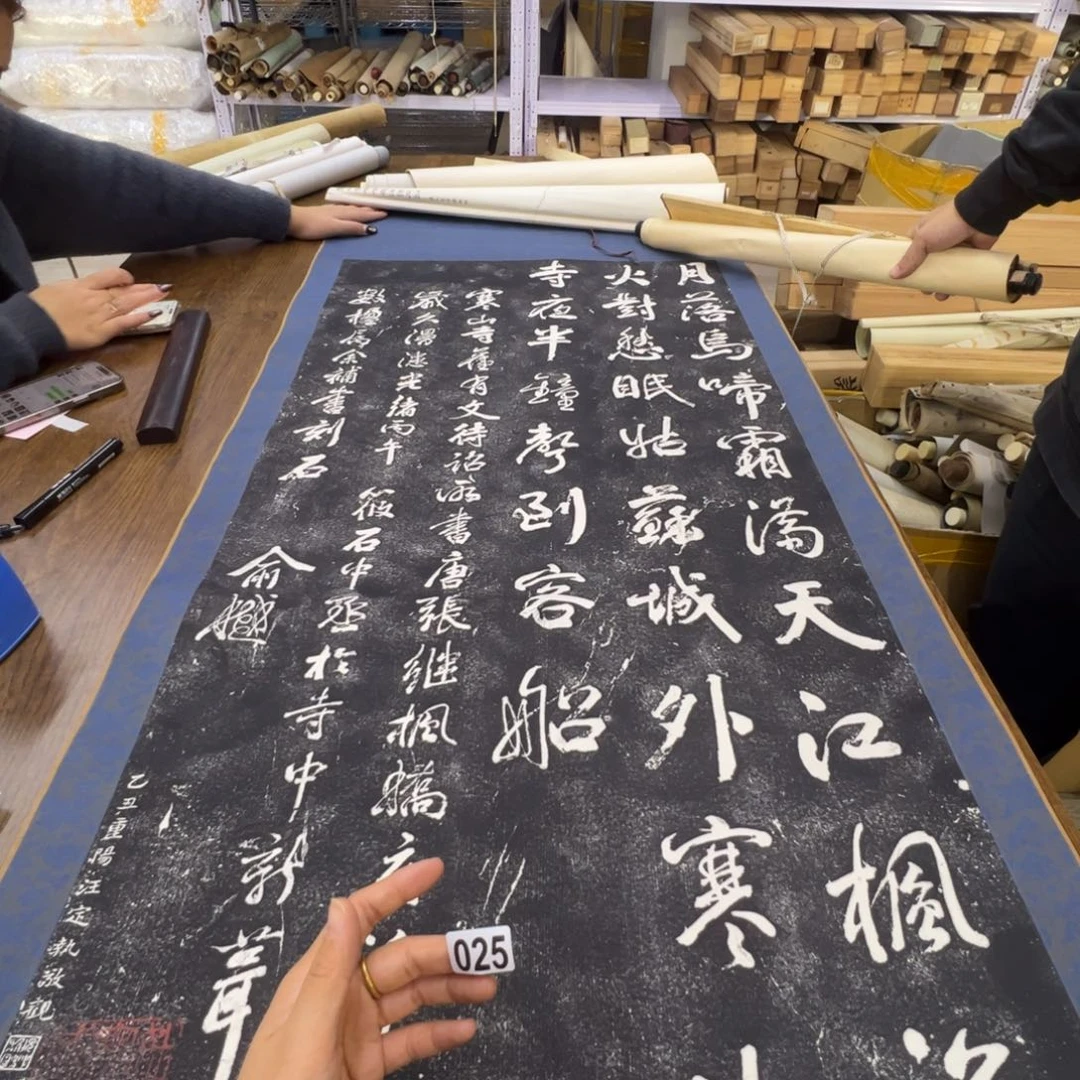 月落烏啼霜滿天江楓
火對愁眠姑蘇城外寒
寺夜半鐘聲到客船
寒山寺舊有文待詔所書唐張繼楓橋
歲久漫漶光緒丙午筱石中丞於寺中新葺
數楹屬余補書刻石俞樾
乙丑重陽汪定執敬觀
025